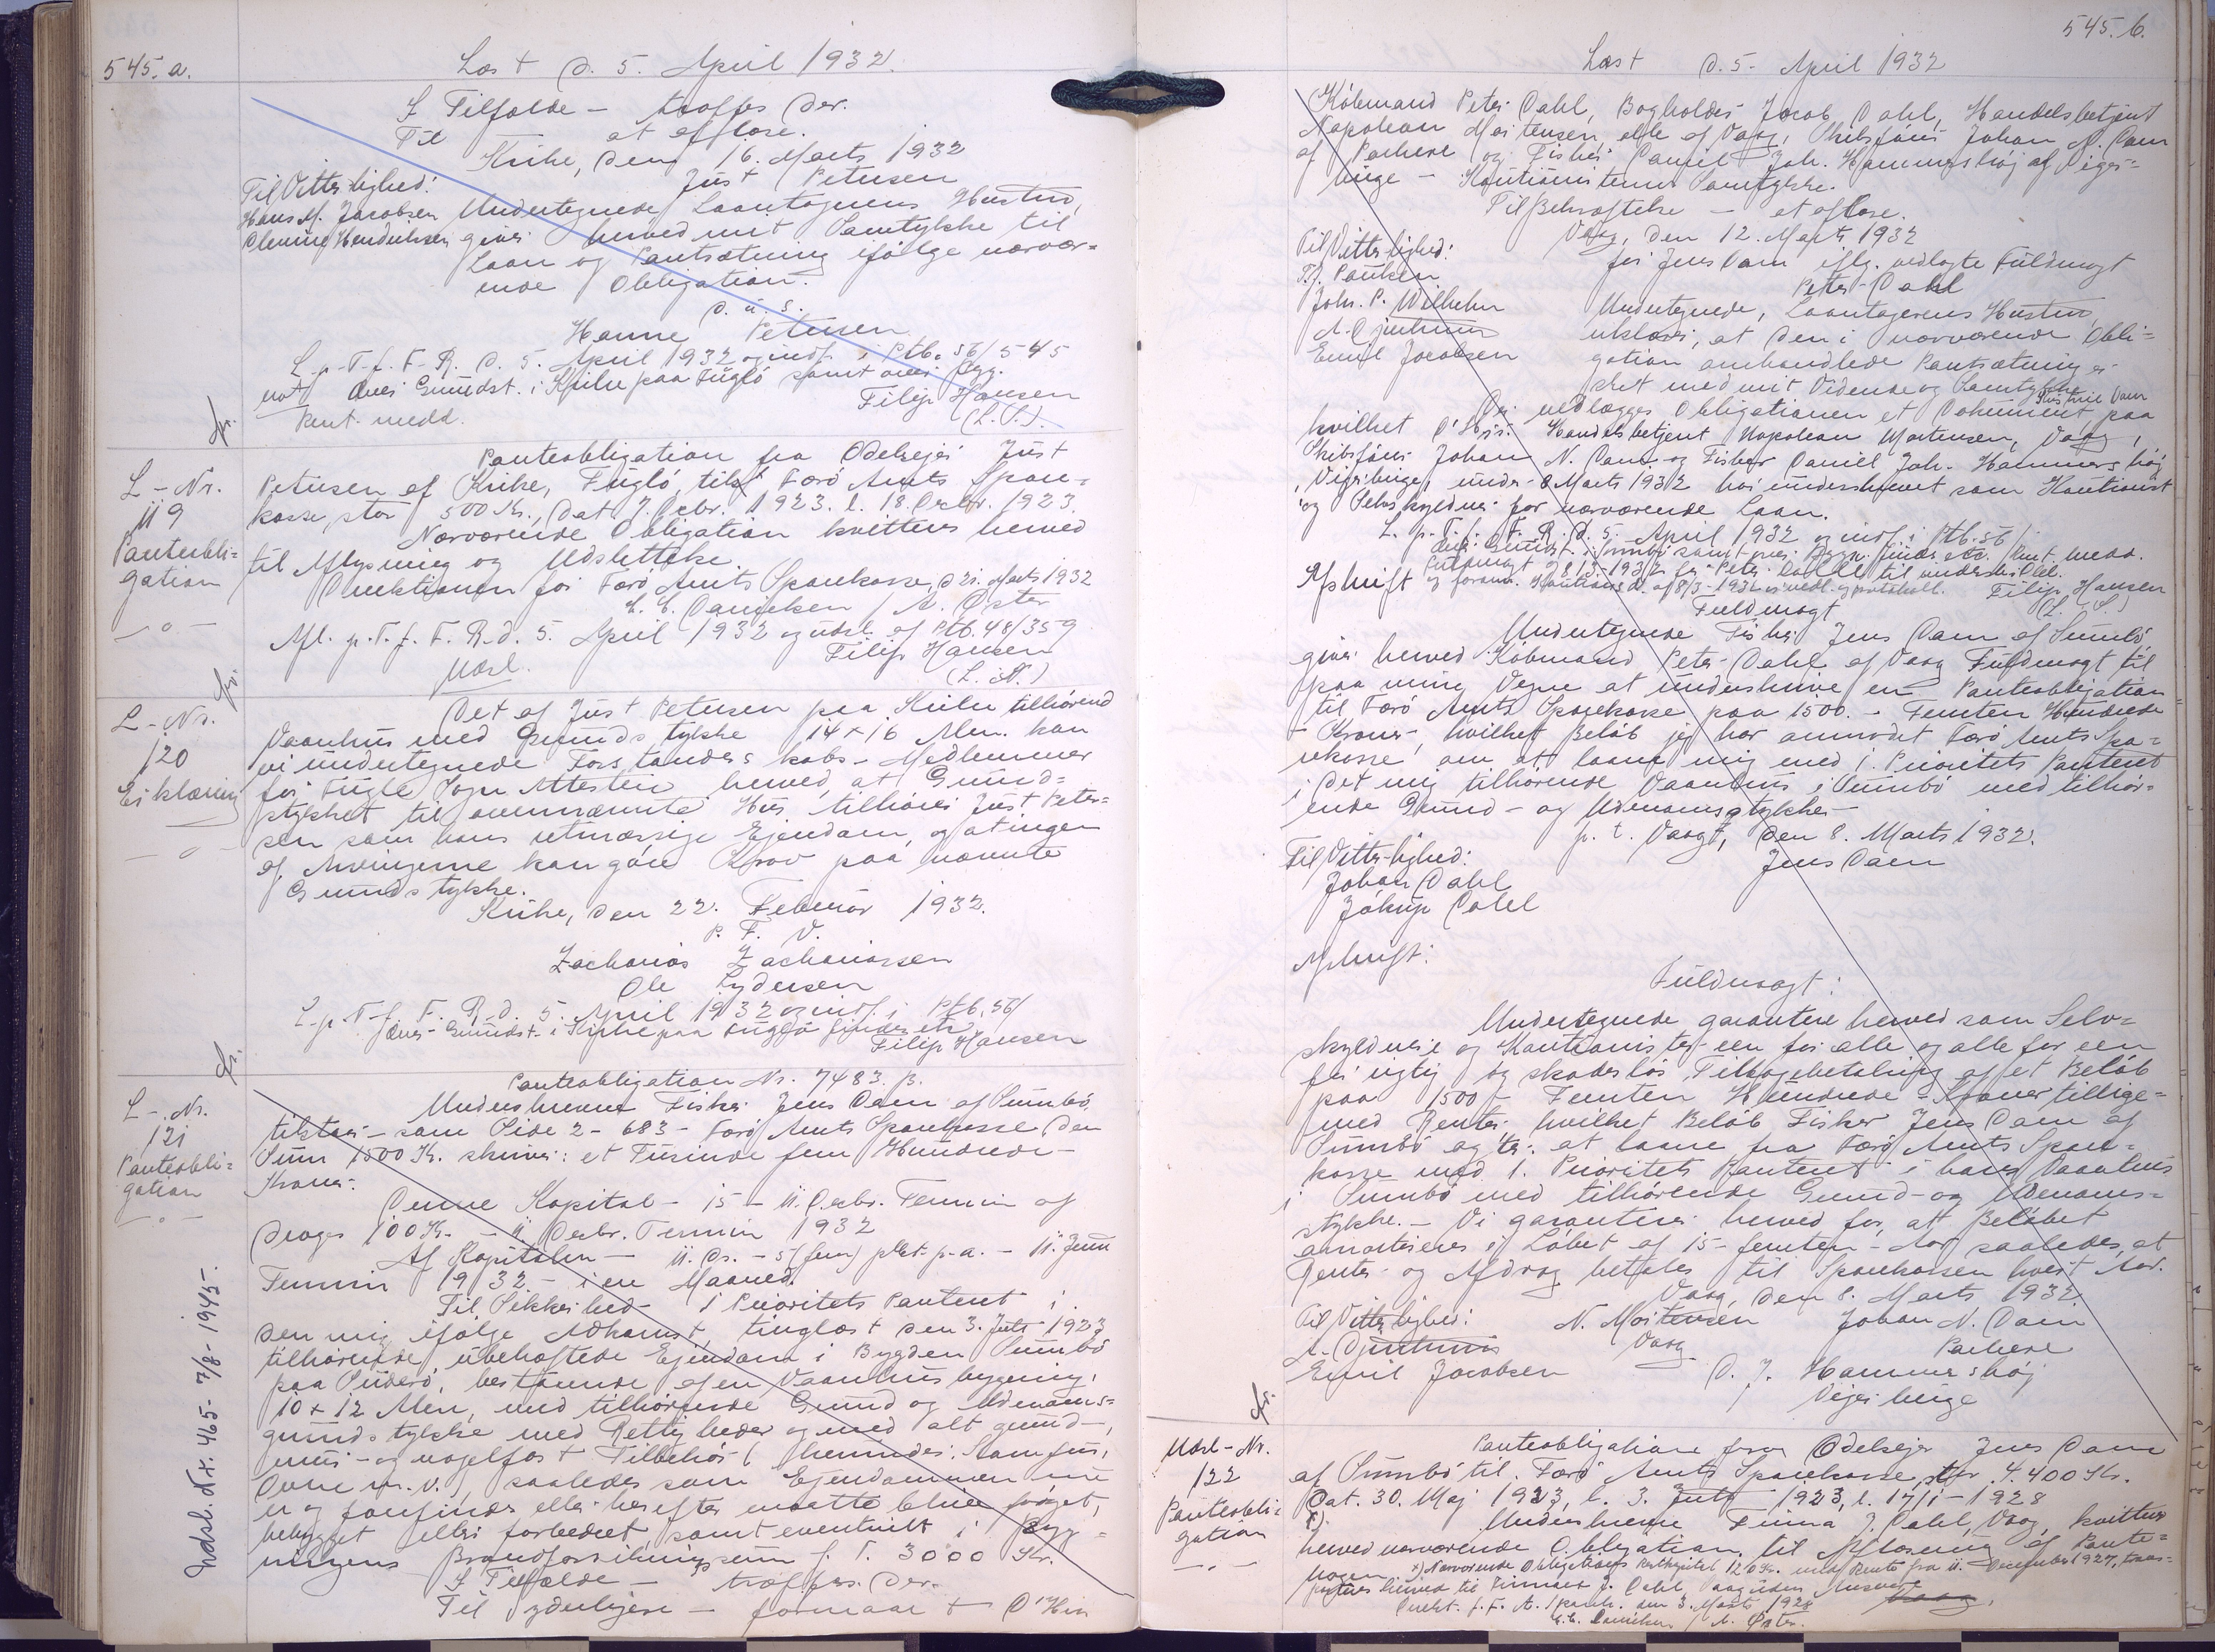 545. a.
Læst d. 5. April 1932.
I Tilfælde — træffes der.
Til at aflæse.
Kirke, den 16. Marts 1932
Just Petersen
Til Vitterlighed:
Hans M. Jacobsen
Undertegnede Laantagerens Hustru,
giver herved mit Samtykke til
Laan og Pantsætning ifølge nærvær=
ende Obligation.
d. u. s.
Hanne Petersen
L. p. T. f. F. R. d. 5. April 1932 og indf. i Ptb. 56/545
not over Grundst. i Kirke paa Fuglö samt over Byg.
Filip Hansen
Pant. medd.
(L. S.).
L-Nr.
119
Panteobli=
gation
Panteobligation fra Odelsejer Just
Petersen af Kirke, Fuglö, til Færö Amts Spare=
kasse, stor 500 Kr., dat. 7. Decbr. 1923. l. 18. Decbr. 1923.
Nærværende Obligation kvitteres herved
til Aflysning og Udslettelse.
Direktionen for Færö Amts Sparekasse, d. 21. Marts 1932
C. C. Danielsen / A. Öster
Afl. p. T. f. F. R. d. 5. April 1932 og udsl. af Ptb. 48/359
Udsl.
Filip Hansen
(L. S.)
L-Nr.
120
Erklæring
Det af Just Petersen paa Kirke tilhørend
Vaanhus med Grundstykke 14 x 16 Alen. kan
vi undertegnede Forstanderskabs-Medlemmer
for Fugle Sogn Attestere herved, at Grund=
stykket til ovennævnte Hus tilhører Just Peter=
sen som hans retmæssige Ejendom, og at ingen
af Arvingerne kan göre Krav paa nævnte
Grundstykke.
Kirke, den 22. Februar 1932.
P. F. V.
Zacharias Zachariassen
Ole Lydersen
L. p. T. f. F. R. d. 5. April 1932 og indf. i Ptb. 56/
over Grundst. i Kirke paa Fuglö findes etc.
Filip Hansen
L-Nr.
121
Panteobli=
gation
Panteobligation Nr. 7483. B.
Underskrevne Fisker Jens Dam af Sumbö
tilstaar — som Side 2-683 — Færö Amts Sparekasse, den
Sum 1500 Kr. skriver: et Tusinde fem Hundrede —
Kroner.
Denne Kapital — 15 — 11. Decbr. Termin af
drages 100 Kr. — 11. Decbr. Termin 1932
Af Kapitalen — 11. Ds. — 5 (fem) pCt. p. a. — 11. Juni
Termin 1932 — i en Maaned.
Til Sikkerhed — 1 Prioritets Panteret i
den mig ifølge Adkomst, tinglæst den 3. Juli 1923
tilhørende, ubehæftede Ejendom i Bygden Sumbö
paa Suderö, bestaaende af en Vaanhusbygning,
10 x 12 Alen, med tilhørende Grund og Udenoms=
grundstykke med Rettigheder og med alt grund-,
mur- og nagelfast Tilbehör (herunder: Komfur,
Ovne m. v.), saaledes som Ejendommen nu
er og forefindes eller herefter maatte blive forøget,
bebygget eller forbedret, samt eventuelt i Byg=
ningens Brandforsikringssum f. T. 3000 Kr.
I Tilfælde — træffes der.
Til yderligere — formaaet D'Hrr
Indsl. Nr. 465 - 7/8 - 1945.
545. b.
Læst d. 5. April 1932
Købmand Peter Dahl, Bogholder Jacob Dahl, Handelsbetjent
Napolean Mortensen, alle af Vaag, Skibsförer Johan N. Dam
af Porkere og Fisker Daniel Joh. Hammershöj af Vejer=
binge — Kautionisternes Samtykke.
Til Bekræftelse — at aflæse.
Vaag, den 12. Marts 1932
Til Vitterlighed:
for Jens Dam iflg. vedlagte Fuldmagt
T. J. Poulsen.
Peter Dahl
Joh. P. Wilhelm
Emil Jacobsen
Undertegnede, Laantagerens Hustru,
erklærer, at den i nærværende Obli=
gation omhandlede Pantsætning er
sket med mit Vidende og Samtykke
Der vedlægges Obligationen et Dokument paa
hvilket D'Hrr. Handelsbetjent Napolean Mortensen, Vaag,
Skibsförer Johan N. Dam og Fisker Daniel Joh. Hammershöj
, Vejerbinge, under 8 Marts 1932 har underskrevet som Kautionist
og Selvskyldner for nærværende Laan.
L. p. T. f. F. R. d. 5. April 1932 og indf. i Ptb. 56/
over Grundst. i Sumbö samt over Bygn. findes etc. Pant. medd.
Fuldmagt af 8/3-1932 for Peter Dahl til underskr.
Filip Hansen
(L. S.)
Afskrift
Fuldmagt
Undertegnede Fisker Jens Dam af Sumbö
giver herved Købmand Peter Dahl af Vaag Fuldmagt til
paa mine Vegne at underskrive en Panteobligation
til Færö Amts Sparekasse paa 1500. — Femten Hundrede
— Kroner, hvilket Beløb jeg har anmodet Færö Amts Spa=
rekasse om at laane mig med 1. Prioritets Panteret
i det mig tilhørende Vaanhus i Sumbö med tilhør=
ende Grund- og Udenomsstykke —
p. t. Vaag, den 8. Marts 1932.
Til Vitterlighed:
Jens Dam
Johan Dahl
Jákup Dahl
Afskrift:
Fuldmagt:
Undertegnede garantere herved som Selv=
skyldnere og Kautionister een for alle og alle for een
for rigtig og skadeslös Tilbagebetaling af et Beløb
paa 1500 — Femten Hundrede — Kroner tillige=
med Renter, hvilket Beløb Fisker Jens Dam af
Sumbö agter at laane fra Færö Amts Spare=
kasse mod 1. Prioritets Panteret i hans Vaanhus
i Sumbö med tilhørende Grund- og Udenoms=
stykke. — Vi garanterer herved for, at Beløbet
amortiseres i Løbet af 15 — femten — Aar saaledes, at
Renter og Afdrag betales til Sparekassen hvert Aar.
Vaag, den 8. Marts 1932.
Til Vitterlighed:
N. Mortensen
Johan N. Dam
Vaag
Porkere
Emil Jacobsen
D. J. Hammershöj
Vejerbinge
Udsl-Nr.
122
Panteobli=
gation
Panteobligation fra Odelsejer Jens Dam
af Sumbö til Færö Amts Sparekasse, stor 4.400 Kr.
Dat. 30. Maj 1923, l. 3. Juli 1923, l. 17/1-1928
Underskrevne J. Dahl, Vaag, kvitterer
herved nærværende Obligation til Aflæsning af Pante=
bogen. x) Nærværende Obligations Restkapital 1200 Kr. med Rente fra 11. December 1927, trans=
porteres herved til J. Dahl, Vaag uden Ansvar
Direkt. f. F. A. Spark. den 3. Marts 1928
C. C. Danielsen / A. Öster.